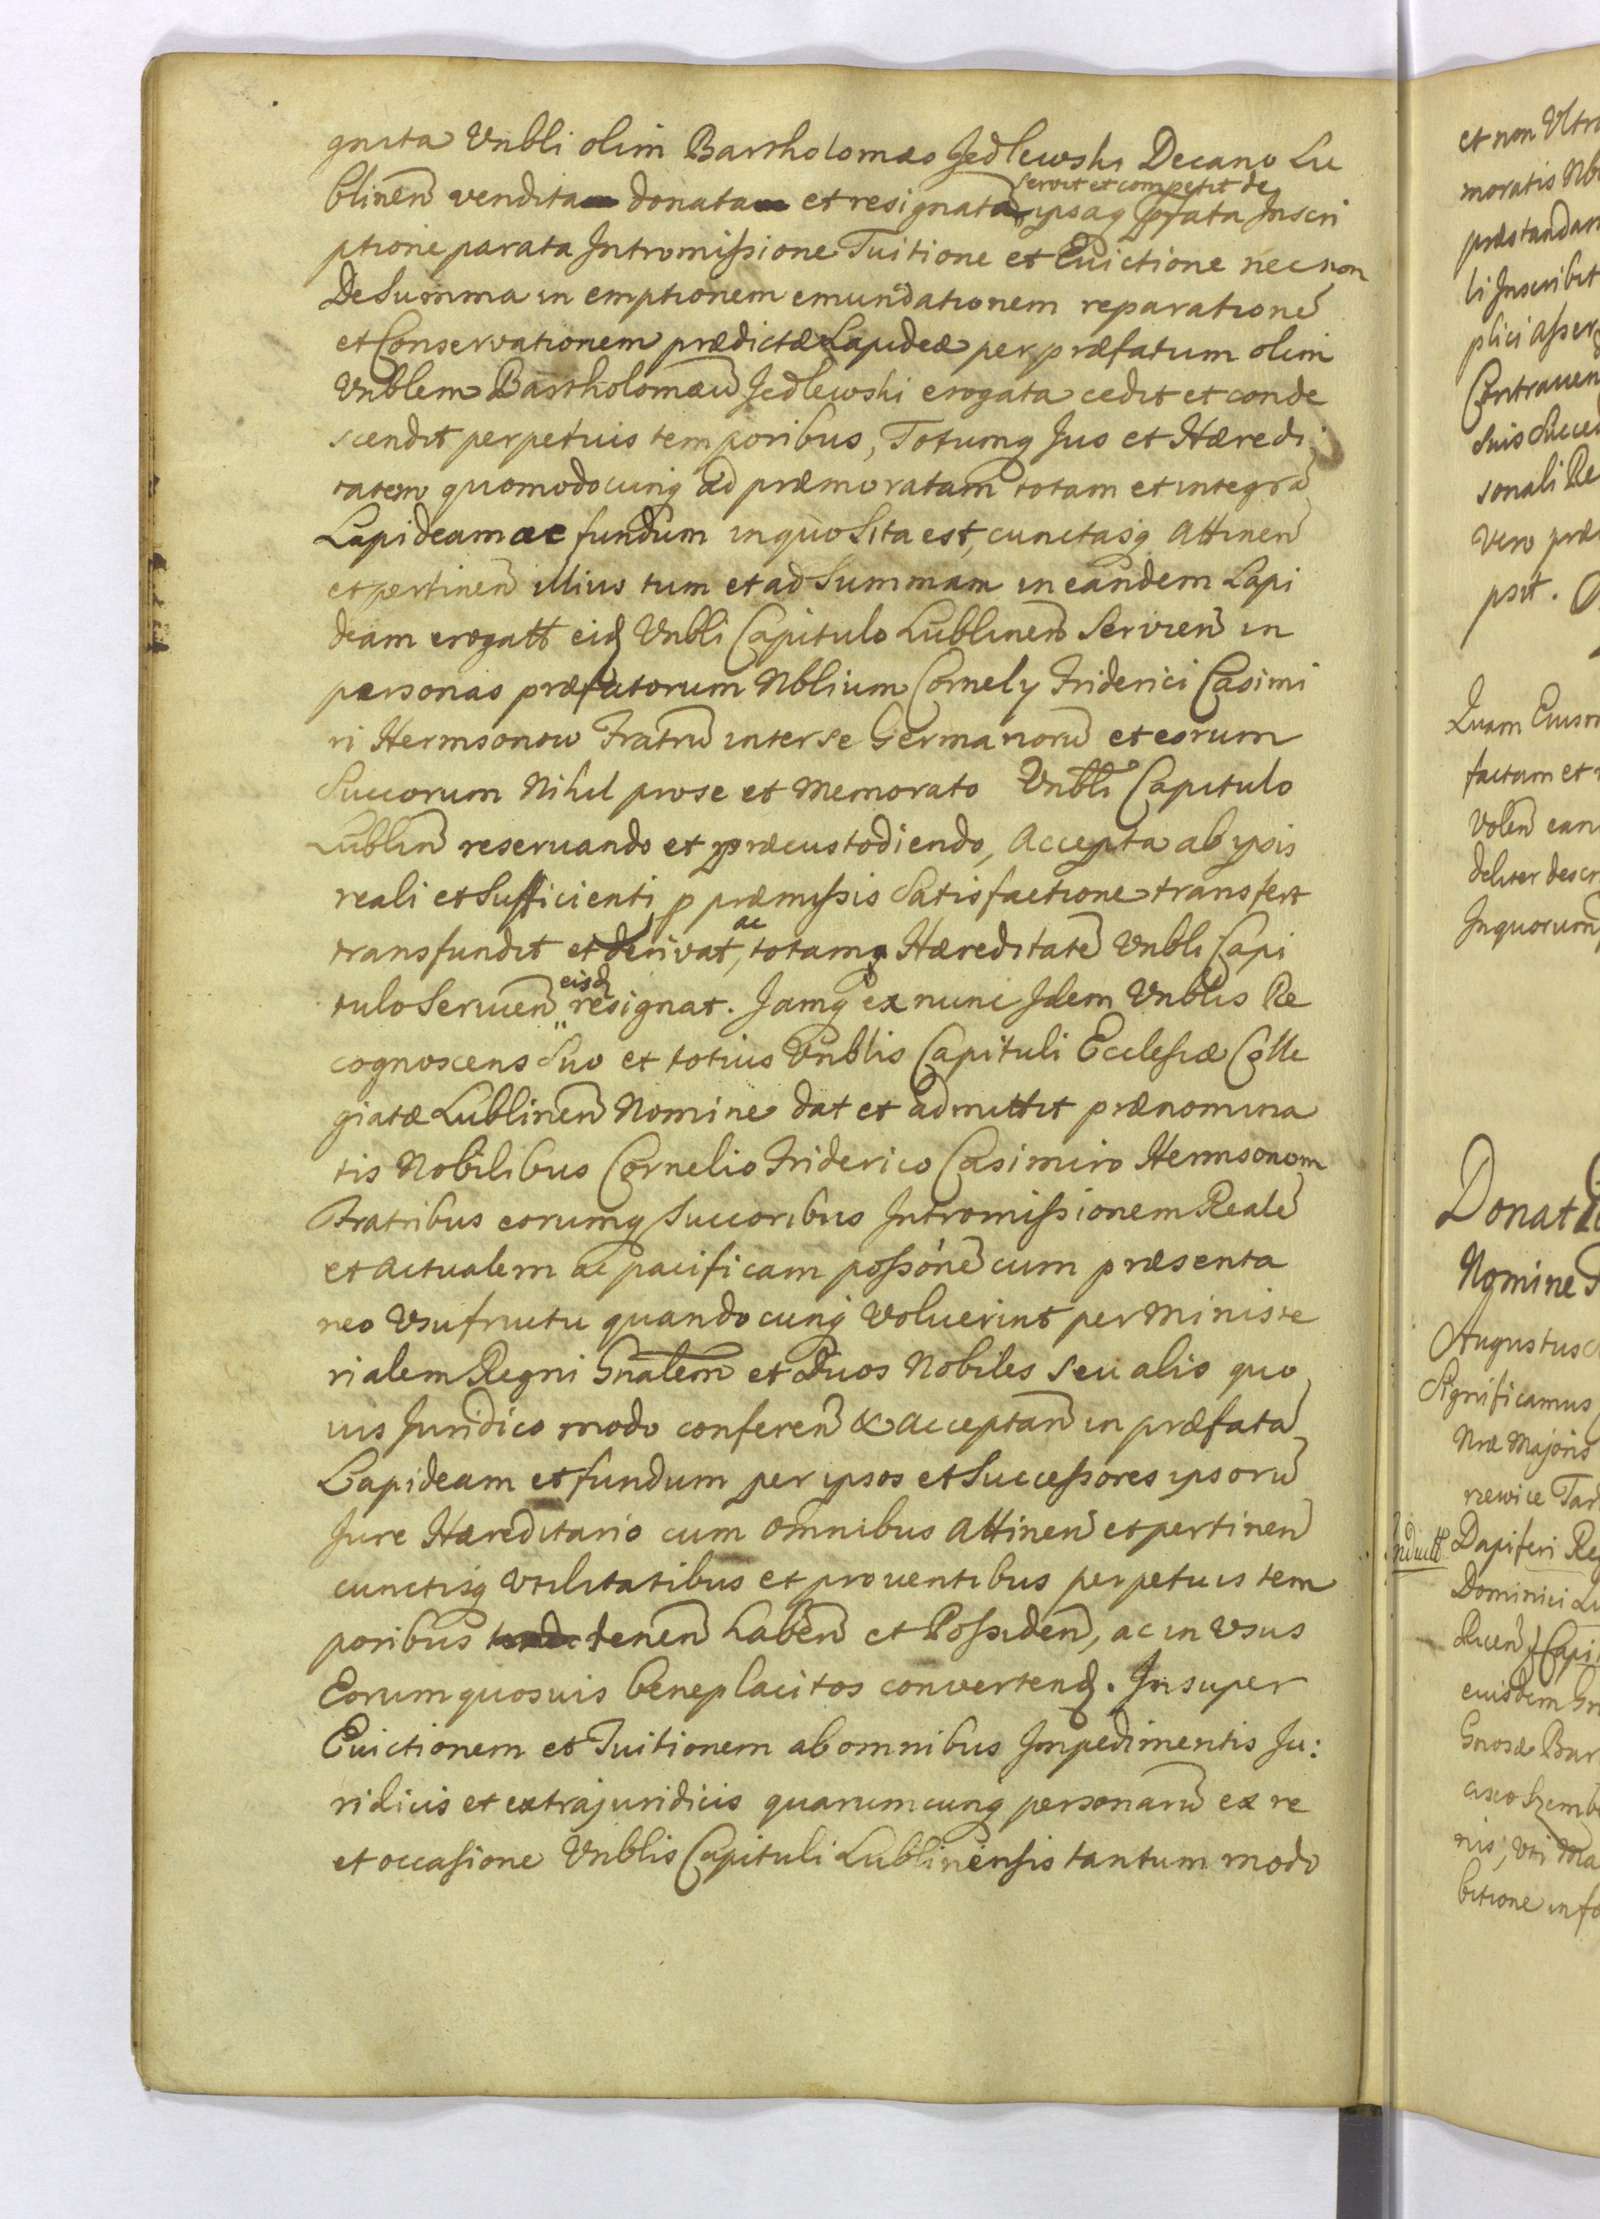 gnita Vnbli olim Bartholomæo Jedlewski Decano Lu
blineñ vendita donata et resignata servit et competit de ipsaq pfata Inscri
ptione parata Intromissione Tuitione et Euictione nec non
De Summa in emptionem emundationem reparationē
et Conservationem prædictæ Lapideæ per præfatum olim
Vnblem Bartholomæū Jedlewski erogata cedit et conde
scendit perpetuis temporibus, Totumq Jus et Hæredi
tatem quomodocunq ad præmoratam totam et integrā
Lapideam ac fundum in quo Sita est, cunctasq Attineñ
et pertineñ illius tum et ad Summam in eandem Lapi
deam erogatt eid Vnbli Capitulo Lublineñ Servieñ in
personas præfatorum Nblium Cornely Friderici Casimi
ri Hermsonow Fratrū inter se Germanorū et eorum
Succorum Nihil pro se et Memorato Vnbli Capitulo
Lublineñ reseruando et præcustodiendo, Accepta ab ypsis
reali et Sufficienti p præmyssis Satisfactione transfert
transfundit et derivat, ac totam Hæreditatē Vnbli Capi
tulo Servieñ eisd resignat. Jamq ex nunc Idem Vnblis Re
cognoscens Suo et totius Vnblis Capituli Ecclesiæ Colle
giatæ Lublineñ Nomine dat et admittit prænomina
tis Nobilibus Cornelio Friderico Casimiro Hermsonom
Fratribus eorumq Succoribus Intromissionem Realē
et Actualem ac pacificam possónē cum præsenta
neo Vsufructu quandocunq Voluerint per Ministe
rialem Regni Gnalem et Duos Nobiles seu alio quo
uis Juridico modo confereñ & acceptañ in præfatā
Lapideam et fundum per ipsos et Successores ipsorū
Jure Hæreditario cum omnibus Attineñ et pertineñ
cunctisq Vtilitatibus et prouentibus perpetuis tem
poribus teneñ habeñ et Possideñ, ac in Vsus
Eorum quosuis beneplacitos convertend. Insuper
Euictionem et Tuitionem ab omnibus Impedimentis Ju:
ridicis et extrajuridicis quarumcunq personarū ex re
et occasione Vnblis Capituli Lublinensis tantummodo
et non Vltra
præstandam
li Inscribit
sonali Re
psit.
factam et
Inquorum
Donat
Nomine
Augustus
Significamus
Nræ Majoris
Induct
Dapiferi Reg
Dominici Lu
euisdem Gn
Gnosæ Bar
bitione